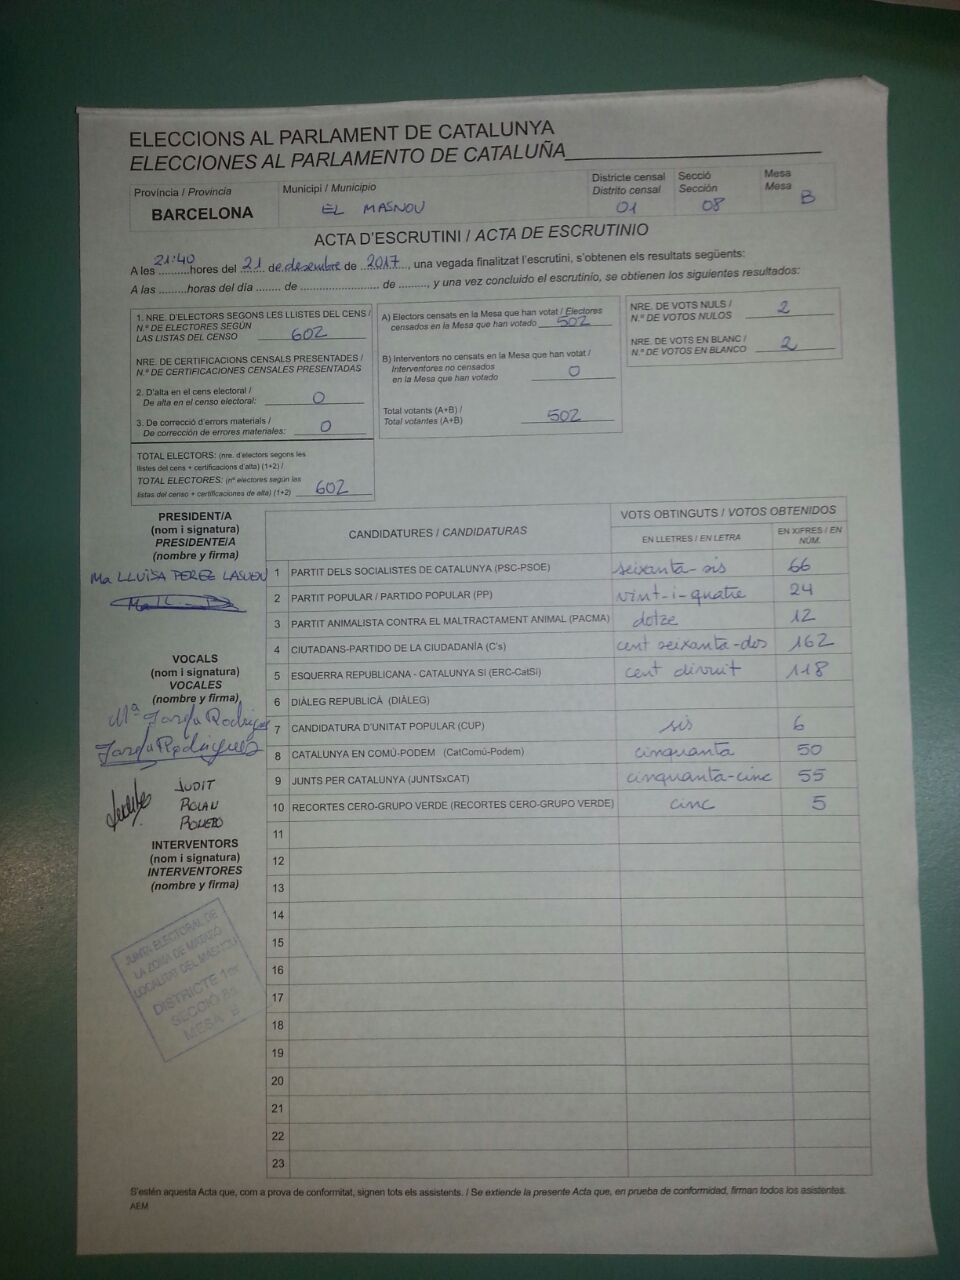 ELECCIONS AL PARLAMENT DE CATALUNYA
ELECCIONES AL PARLAMENTO DE CATALUÑA
Província / Provincia
BARCELONA
Municipi / Municipio
EL MASNOU
Districte censal
Distrito censal
01
Secció
Sección
08
Mesa
Mesa
B
ACTA D'ESCRUTINI / ACTA DE ESCRUTINIO
A les 21:40 hores del 21 de desembre de 2017, una vegada finalitzat l'escrutini, s'obtenen els resultats següents:
A las .........horas del día ........ de ........................ de ........., y una vez concluido el escrutinio, se obtienen los siguientes resultados:
1. NRE. D'ELECTORS SEGONS LES LLISTES DEL CENS /
N.º DE ELECTORES SEGÚN
LAS LISTAS DEL CENSO 602
NRE. DE CERTIFICACIONS CENSALS PRESENTADES /
N.º DE CERTIFICACIONES CENSALES PRESENTADAS
2. D'alta en el cens electoral /
De alta en el censo electoral: 0
3. De correcció d'errors materials /
De corrección de errores materiales: 0
TOTAL ELECTORS: (nre. d'electors segons les
llistes del cens + certificacions d'alta) (1+2) /
TOTAL ELECTORES: (nº electores según las
listas del censo + certificaciones de alta) (1+2) 602
A) Electors censats en la Mesa que han votat / Electores
censados en la Mesa que han votado 502
B) Interventors no censats en la Mesa que han votat /
Interventores no censados
en la Mesa que han votado 0
Total votants (A+B) /
Total votantes (A+B) 502
NRE. DE VOTS NULS /
N.º DE VOTOS NULOS 2
NRE. DE VOTS EN BLANC /
N.º DE VOTOS EN BLANCO 2
PRESIDENT/A
(nom i signatura)
PRESIDENTE/A
(nombre y firma)
Ma LLUISA PEREZ
VOCALS
(nom i signatura)
VOCALES
(nombre y firma)
JUDIT
ROLAN
ROMERO
INTERVENTORS
(nom i signatura)
INTERVENTORES
(nombre y firma)
JUNTA ELECTORAL DE
LA ZONA DE MATARÓ
LOCALITAT DEL MASNOU
DISTRICTE 1er
SECCIÓ 8a
MESA B
CANDIDATURES / CANDIDATURAS
VOTS OBTINGUTS / VOTOS OBTENIDOS
EN LLETRES / EN LETRA
EN XIFRES / EN NÚM.
1 PARTIT DELS SOCIALISTES DE CATALUNYA (PSC-PSOE) seixanta-sis 66
2 PARTIT POPULAR / PARTIDO POPULAR (PP) vint-i-quatre 24
3 PARTIT ANIMALISTA CONTRA EL MALTRACTAMENT ANIMAL (PACMA) dotze 12
4 CIUTADANS-PARTIDO DE LA CIUDADANÍA (C's) cent seixanta-dos 162
5 ESQUERRA REPUBLICANA - CATALUNYA SÍ (ERC-CatSí) cent divuit 118
6 DIÀLEG REPUBLICÀ (DIÀLEG)
7 CANDIDATURA D'UNITAT POPULAR (CUP) sis 6
8 CATALUNYA EN COMÚ-PODEM (CatComú-Podem) cinquanta 50
9 JUNTS PER CATALUNYA (JUNTSxCAT) cinquanta-cinc 55
10 RECORTES CERO-GRUPO VERDE (RECORTES CERO-GRUPO VERDE) cinc 5
11
12
13
14
15
16
17
18
19
20
21
22
23
S'estén aquesta Acta que, com a prova de conformitat, signen tots els assistents. / Se extiende la presente Acta que, en prueba de conformidad, firman todos los asistentes.
AEM